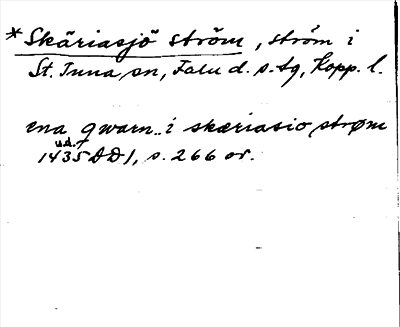 *Skäriasjö ström, ström i
St. Tuna sn, Falu d. s. tg, Kopp. l.
ena qwarn.. i skæriasio strøm
u.d.
1435 DD 1, s. 266 or.